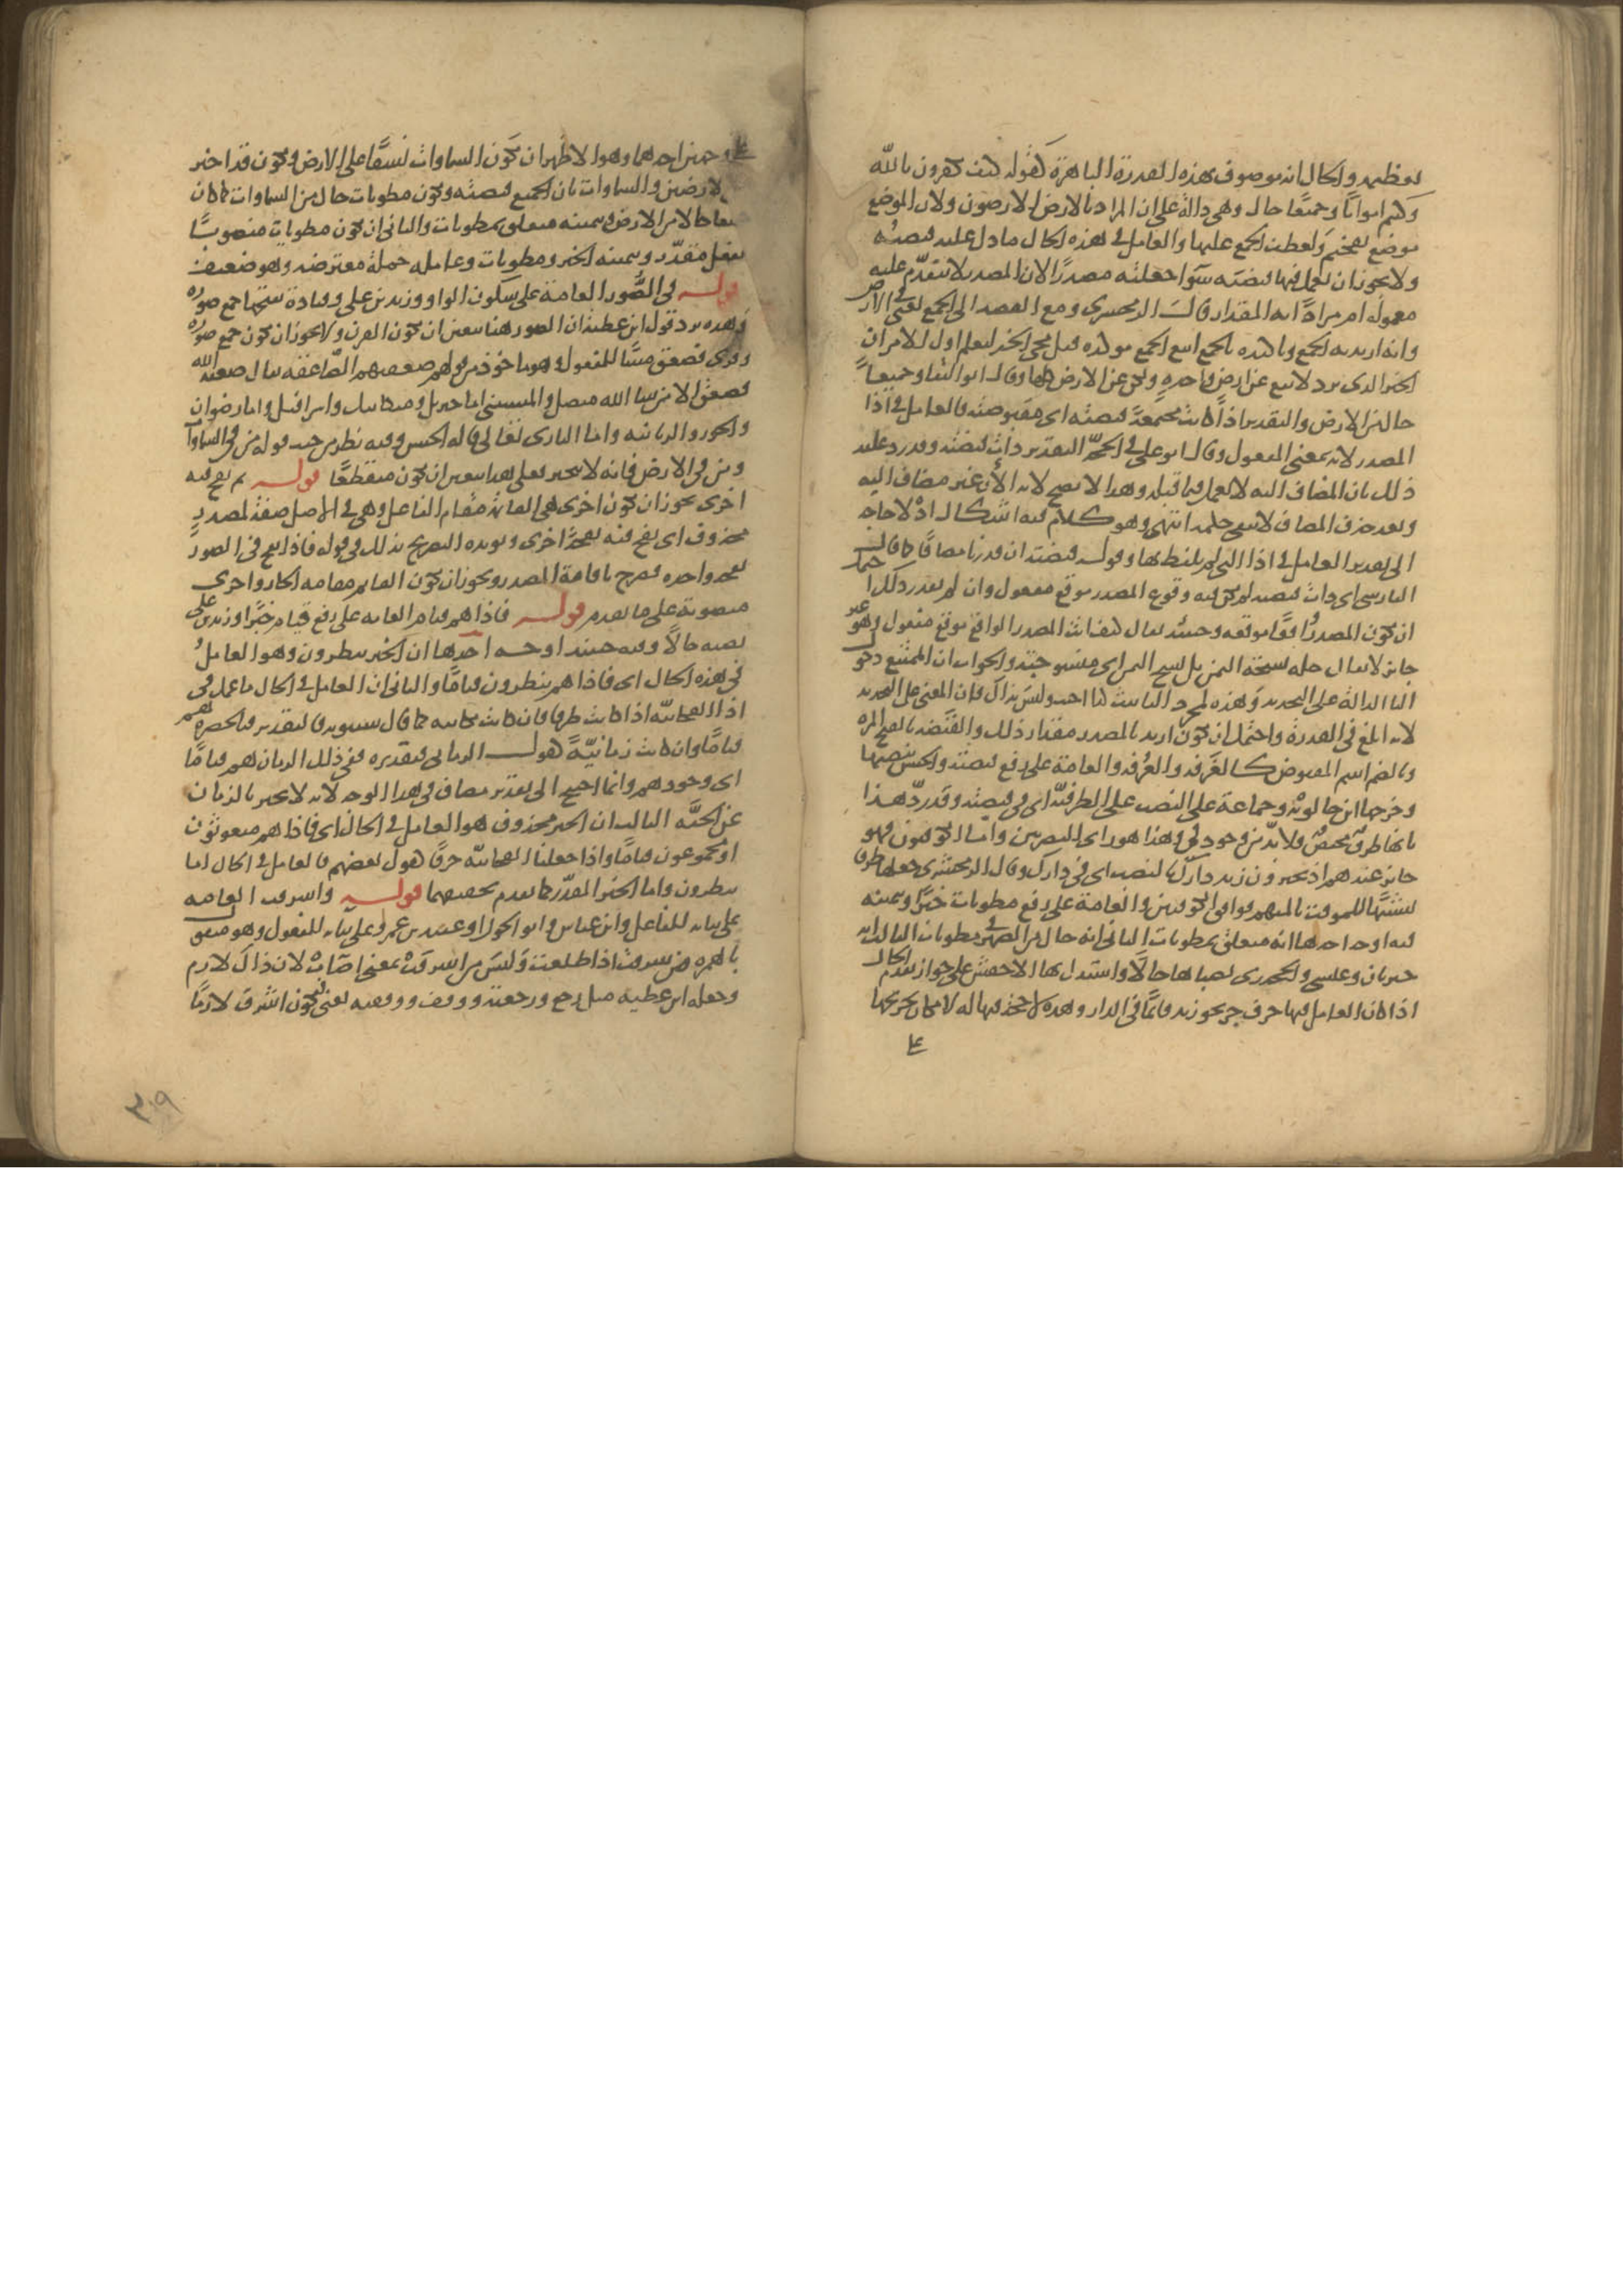 تعظيمه والحال انه موصوف بهذه القدرة الباهرة كقوله كيف تكفرون بالله
وكنتم امواتا وجميعًا حال وهي دالة على ان المراد بالارض الارضون ولان الموضع
موضع تفخيم ولعطف الجمع عليها والعامل في هذه الحال ما دل عليه قبضته
ولا يجوز ان يعمل فيها قبضته سَوا جعلته مصدرًا لان المصدر لا يتقدّم عليه
معموله ام مرادًا به المقدار قال الزمخشري ومع القصد الى الجمع يعني في الارض
وانه اريد به الجمع وتاكيده بالجميع اتبع الجميع مولده قبل مجي الخبر ليعلم اول الامر ان
الخبر الذي يرد لا يقع عن ارضٍ واحدةٍ ولكن عن الاراضي كلها وقال ابو البقا وجميعاً
حال من الارض والتقدير اذا كانت مجتمعةً قبضته اى مقبوضته فالعامل في اذا
المصدر لانه بمعنى المفعول وقال ابو علي في الحجّة التقدير ذات قبضته وقد رد عليه
ذلك بان المضاف اليه لا يعمل فيما قبله وهذا لا يصح لانه الآن غير مضاف اليه
وبعد حذف المضاف لا يبقى حكمه انتهى وهو كلام فيه اشكال اذ لا حاجة
الى تقدير العامل في اذا التي لم يلفظ بها وقوله قبضته ان قدرنا مضافًا كما قال
الفارسي اى ذات قبضته لم يكن فيه وقوع المصدر موقع مفعول وان لم يقدر ذلك احتمل
ان يكون المصدرُ واقعًا موقعه وحينئذ يقال كيف انث المصدر الواقع موقع مفعول وهو غير
جايز لا يقال حلة نسجة اليمن بل نسج اليمن اى منسوجته والجواب ان الممتنع دخول
التا الدالة على التحديد وهذه لمجرد التانيث كذا اجيب وليس بذاك فان المعنى على التحديد
لانه ابلغ في القدرة واحتمل ان يكون اريد بالمصدر مقدار ذلك والقَبضه بالفتح المره
وبالضم اسم المقبوض كالغَرفه والغُرفه والعامة على رفع قبضته والحسن بنصبها
وخرجها ابن خالويه وجماعة على النصب على الظرفيّة اى في قبضته وقد ردّ هذا
بانها ظرف مختص فلا بدّ من وجود في وهذا هو راى البصريين واما الكوفيون فهو
جايز عندهم اذ يجيزون زيد دارَك بالنصب اى في دارك وقال الزمخشري جعلها ظرفا
تشبيهًا للموقت بالمبهم فوافق الكوفيين والعامة على رفع مطويات خبرًا وبيمينه
فيه اوجه احدها انه متعلق بمطويات الثاني انه حال من الضمير في مطويات الثالث انه
خبر ثان وعيسى والجحدرى نصباها حالًا واستدل بها الاخفش على جواز تقدم الحال
اذا كان العامل فيها حرف جر نحو زيد قائمًا في الدار وهذه لا حجة فيها له لامكان تخريجها
على
على وجهين احدهما وهو الاظهر ان يكون السماوات نسقًا على الارض ويكون قد اخبر
الارضين والسماوات بان الجميع قبضته ويكون مطويات حال من السماوات كما كان
جميعا حالا من الارض وبيمينه متعلق بمطويات والثاني ان يكون مطويات منصوبًا
بفعل مقدّر وبيمينه الخبر ومطويات وعامله جملة معترضه وهو ضعيف
قوله في الصُّور العامة على سكون الواو وزيد بن علي وقتادة بفتحها جمع صورة
وهذه ترد قول ابن عطية ان الصور هنا يتعين ان يكون القرن ولا يجوز ان يكون جمع صورة
وقرى فصعق مبنيًّا للمفعول وهو ماخوذ من قولهم صعقتهم الصّاعقه يقال صعقه الله
فصعق الا من شا الله متصل والمستثنى اما جبريل وميكائيل واسرافيل واما رضوان
والحور والزبانيه واما البارى تعالى قاله الحسن وفيه نظر من حيث قوله من في السماوات
ومن في الارض فانه لا يتحيز فعلى هذا يتعين ان يكون منقطعًا قوله ثم نفخ فيه
اخرى يجوز ان يكون اخرى هي القائمة مقام الفاعل وهي في الاصل صفة لمصدرٍ
محذوف اى نفخ فيه نفخةٌ اخرى ويويده التصريح بذلك في قوله فاذا نفخ في الصور
نفخة واحدة فصرح باقامة المصدر ويجوز ان يكون القايم مقامه الجار واخرى
منصوبة على ما تقدم قوله فاذا هم قيام العامة على رفع قيام خبرًا وزيد بن على
نصبه حالًا وفيه حينئذ اوجه احدها ان الخبر ينظرون وهو العاملُ
في هذه الحال اى فاذا هم ينظرون قيامًا والثاني ان العامل في الحال ما عمل في
اذا الفجائيّه اذا كانت ظرفا فان كانت مكانيه كما قال سيبويه فالتقدير فبالحضرة هم
قيامًا وان كانت زمانيّةً كقول الرماني فتقديره ففي ذلك الزمان هم قيامًا
اى وجودهم وانما احتيج الى تقدير مضاف في هذا الوجه لانه لا يخبر بالزمان
عن الجثّه الثالث ان الخبر محذوف هو العامل في الحال اى فاذا هم مبعوثون
او مجموعون قيامًا واذا جعلنا الفجائيّه حرفًا كقول بعضهم فالعامل في الحال اما
ينظرون واما الخبر المقدّر كما تقدم تحقيقهما قوله واشرقت العامه
على بنايه للفاعل وابن عباس وابو الجوزا وعبيد بن عمير على بنايه للمفعول وهو منقول
بالهمزه من شرقت اذا طلعت وليس من اشرقت بمعنى اضاءت لان ذاك لازم
وجعله ابن عطيه مثل رجع ورجعته ووقف ووقفته يعني فيكون اشرق لازمًا
٣٠٩